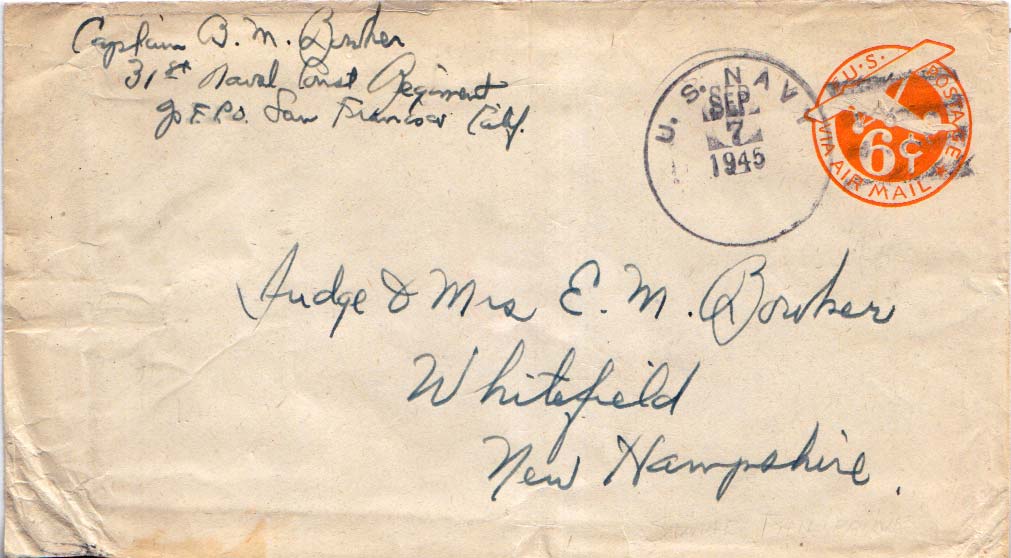 Captain B. M. Bowker
31st Naval Const Regiment
℅ F.P.O. San Francisco Calif.
U. S. NAVY
SEP
7
1945
U.S. POSTAGE
6¢
VIA AIR MAIL
Judge & Mrs E. M. Bowker
Whitefield
New Hampshire.